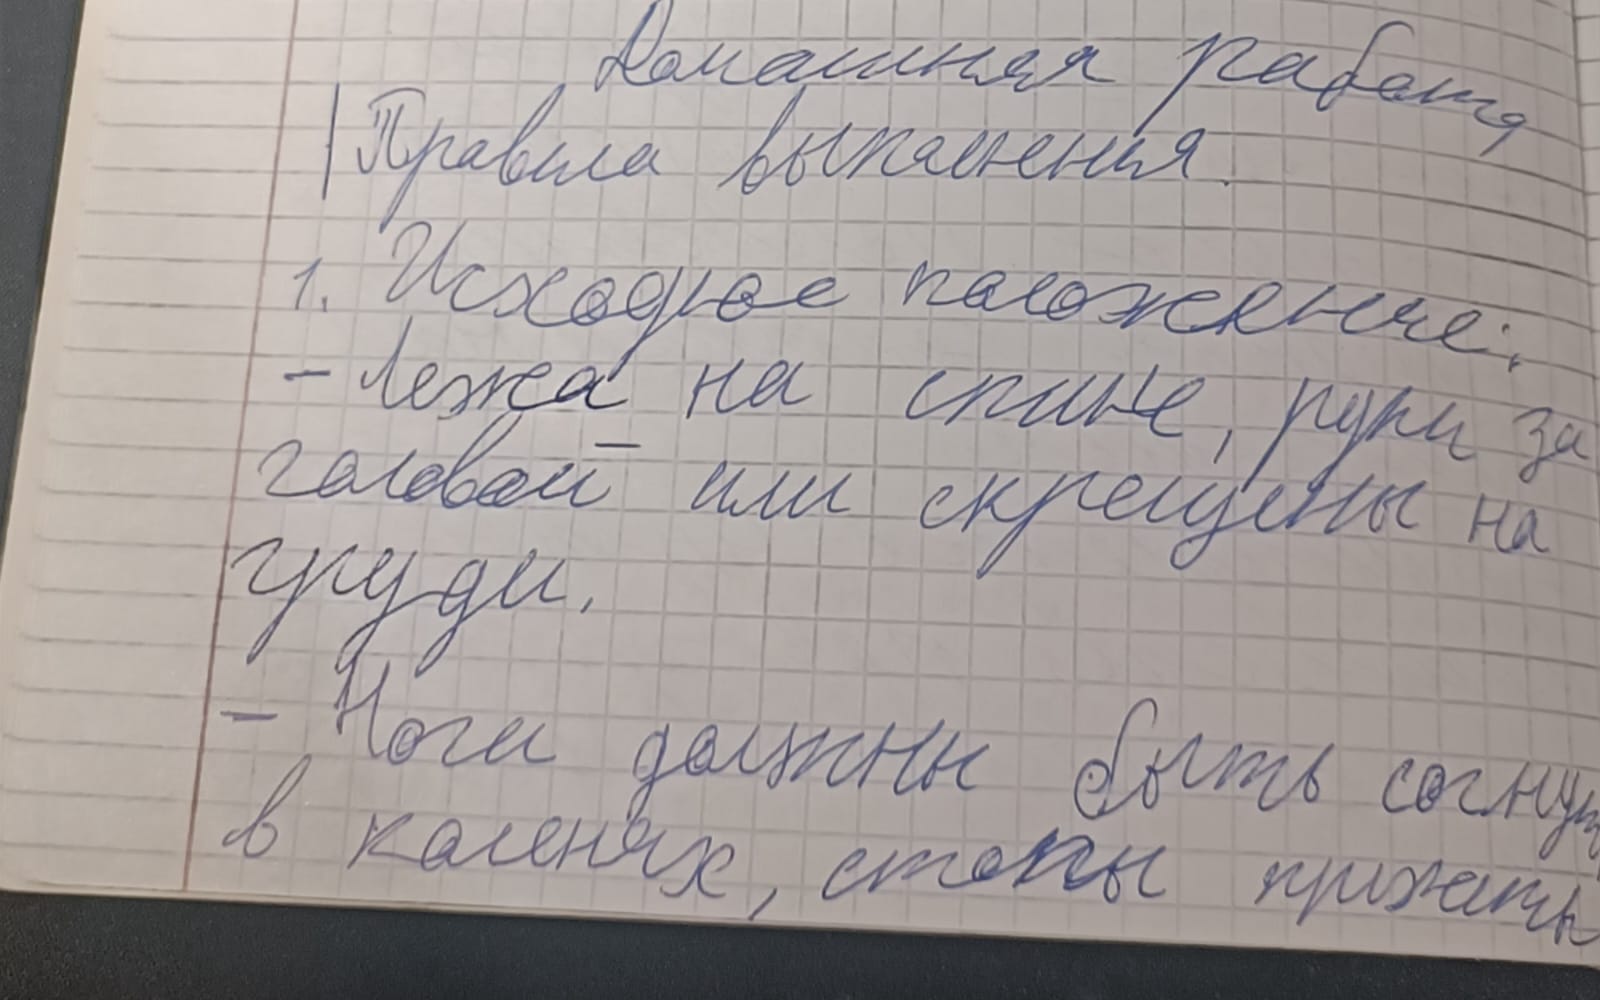 Домашняя работа
Правила выполнения.
1. Исходное положение:
- Лежа на спине, руки за
головой или скрещены на
груди.
- Ноги должны быть согнут
в коленях, стопы прижаты